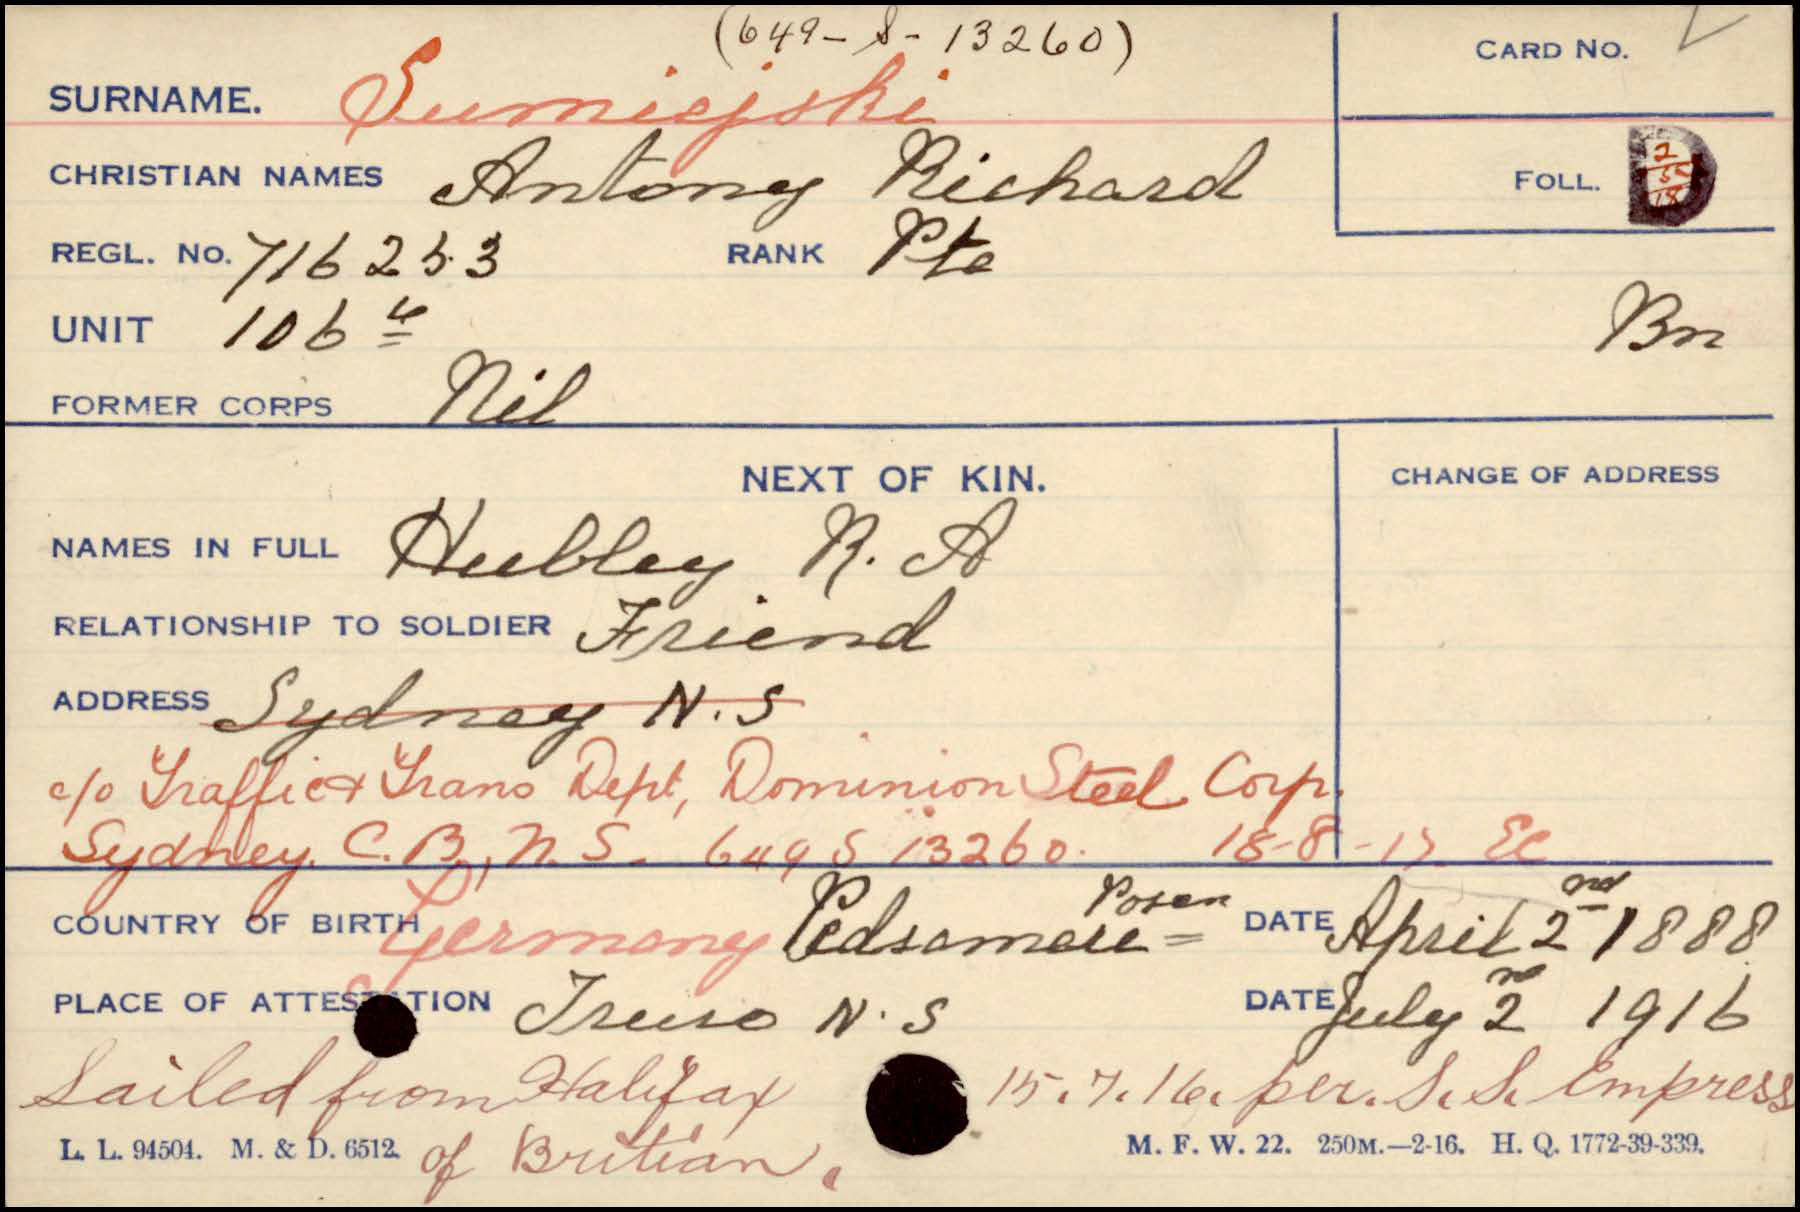 (649-S-13260)
CARD NO.
SURNAME. Sumiejski
CHRISTIAN NAMES Antony Richard
FOLL. D 2
18
REGL. No. 716253 RANK Pte
UNIT 106th Bn
FORMER CORPS Nil
NEXT OF KIN. CHANGE OF ADDRESS
NAMES IN FULL Hubley R. A
RELATIONSHIP TO SOLDIER Friend
ADDRESS Sydney N.S
c/o Traffic & Trans Dept, Dominion Steel Corp.
Sydney. C.B., N.S. 649 S 13260. 18-8-17. EC
COUNTRY OF BIRTH Germany Pedsamere = Posen DATE April 2nd 1888
PLACE OF ATTESTATION Truro N.S DATE July 2nd 1916
Sailed from Halifax 15.7.16. per. S.S. Empress
of Britian.
L. L. 94504. M. & D. 6512. M. F. W. 22. 250M.—2-16. H. Q. 1772-39-339.